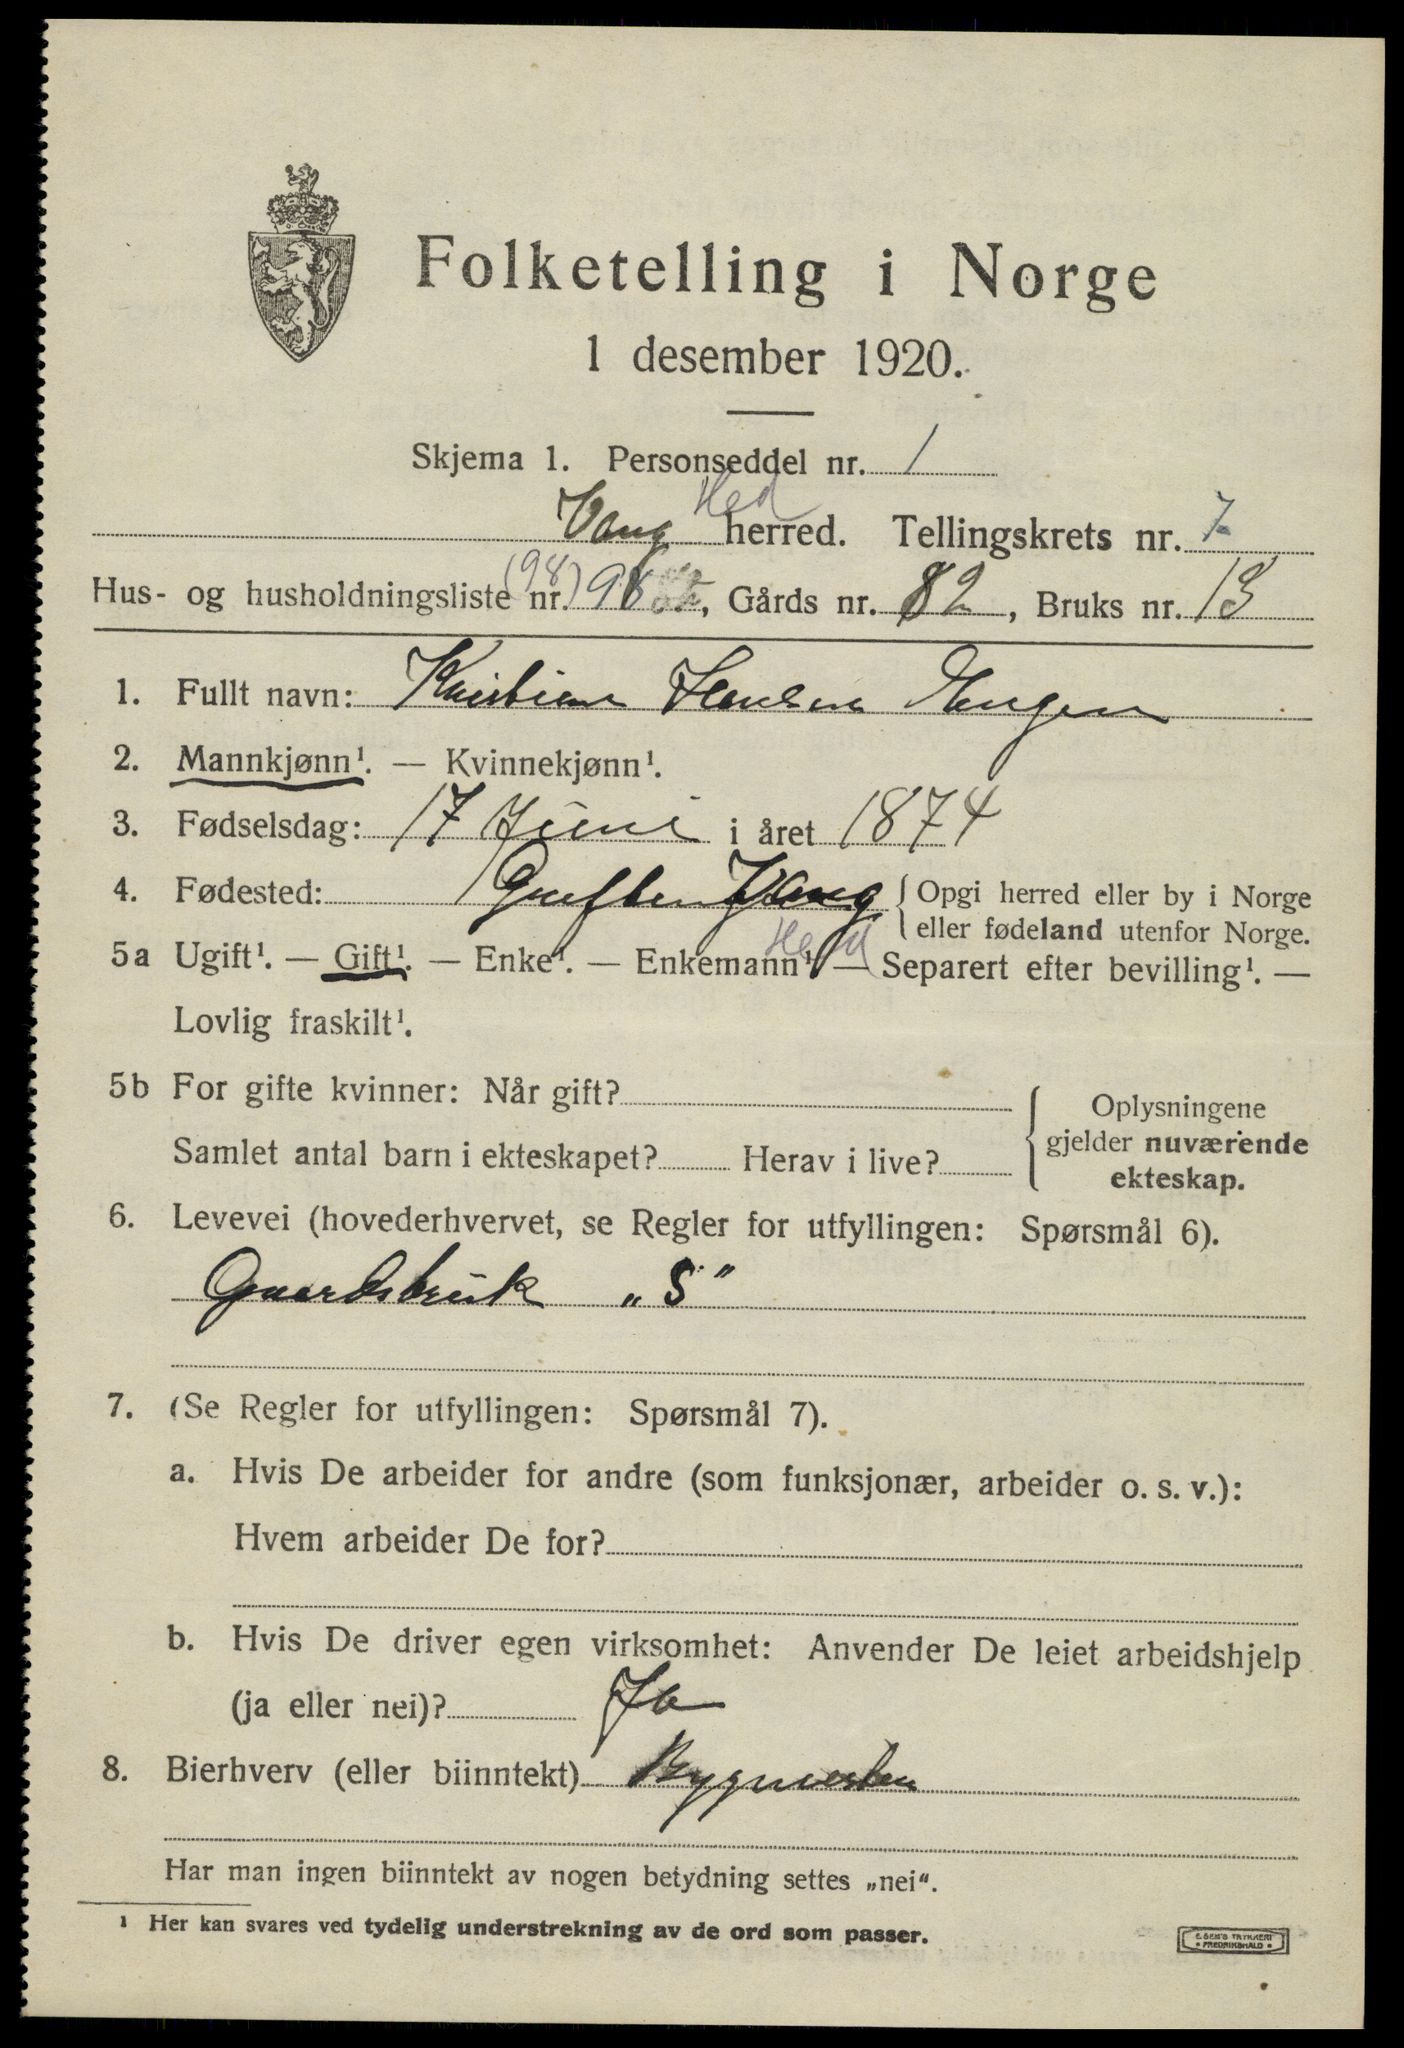 Folketelling i Norge
1 desember 1920.
Skjema 1. Personseddel nr. 1
Vang Hed herred. Tellingskrets nr. 7
Hus- og husholdningsliste nr. (98) 98, Gårds nr. 82, Bruks nr. 13
1. Fullt navn: Kristian Hansen Haugen
2. Mannkjønn¹. — Kvinnekjønn¹.
3. Fødselsdag: 17 Juni i året 1874
4. Fødested: Vang { Opgi herred eller by i Norge
eller fødeland utenfor Norge.
Hed
5a Ugift¹. — Gift¹. — Enke¹. — Enkemann¹. — Separert efter bevilling¹. —
Lovlig fraskilt¹.
5b For gifte kvinner: Når gift?
Samlet antal barn i ekteskapet? Herav i live?
{ Oplysningene
gjelder nuværende
ekteskap.
6. Levevei (hovederhvervet, se Regler for utfyllingen: Spørsmål 6).
Gaardsbruk „S"
7. (Se Regler for utfyllingen: Spørsmål 7).
a. Hvis De arbeider for andre (som funksjonær, arbeider o. s. v.):
Hvem arbeider De for?
b. Hvis De driver egen virksomhet: Anvender De leiet arbeidshjelp
(ja eller nei)? Ja
8. Bierhverv (eller biinntekt)
Har man ingen biinntekt av nogen betydning settes „nei".
¹ Her kan svares ved tydelig understrekning av de ord som passer.
E. SEM'S TRYKKERI
• FREDRIKSHALD •